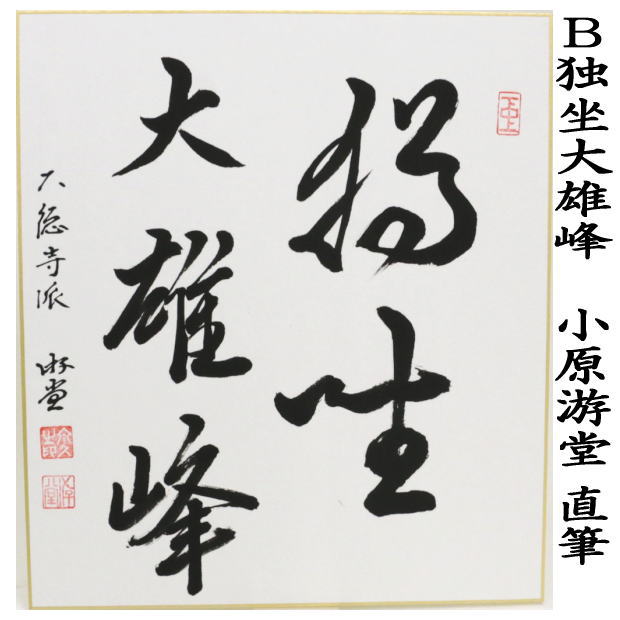 B独坐大雄峰 小原游堂 直筆
独坐
大雄峰
大徳寺派 游堂